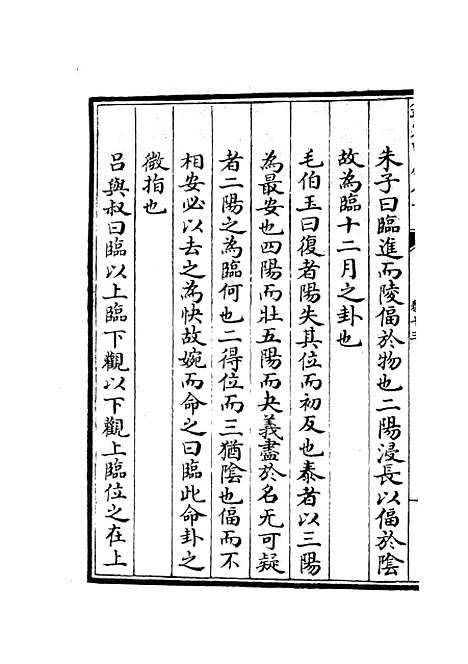 朱子曰臨進而陵偪於物也二陽浸長以偪於陰
故為臨十二月之卦也
毛伯玉曰復者陽失其位而初反也泰者以三陽
為最安也四陽而壯五陽而夬義盡於名无可疑
者二陽之為臨何也二得位而三猶陰也偪而不
相安必以去之為快故婉而命之曰臨此命卦之
微指也
呂與叔曰臨以上臨下觀以下觀上臨位之在上